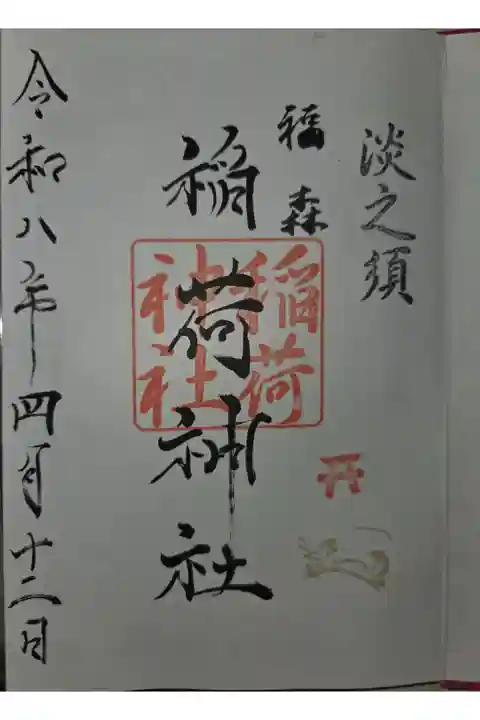 淡之須
福森
稲荷神社
稲荷
神社
令和八年四月十二日